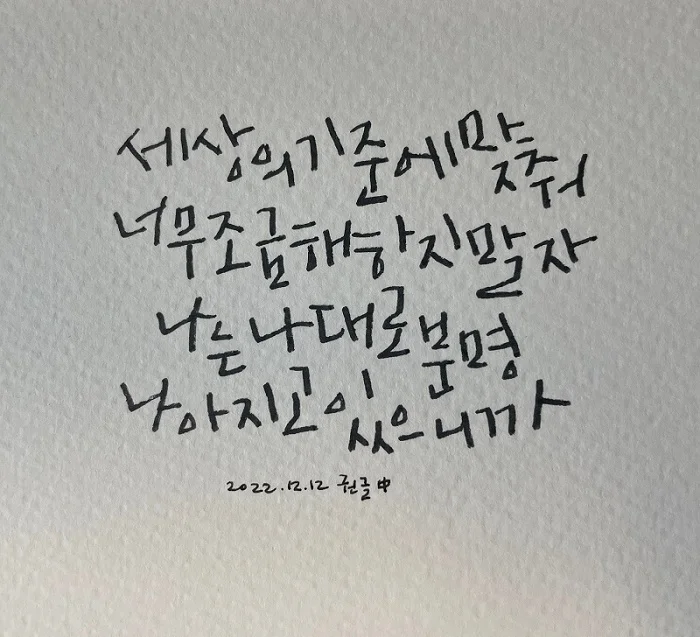 세상의 기준에 맞춰
너무 조급해하지 말자
나는 나대로 분명
나아지고 있으니까
2022.12.12 퀀글中